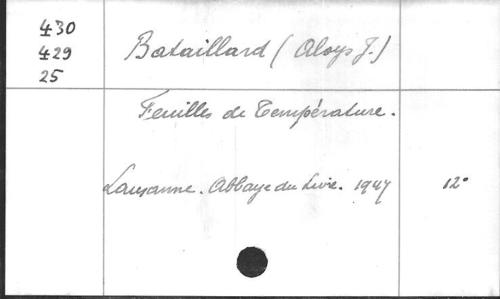 430
429
25
Bataillard (Aloys J.)
Feuilles de Température.
Lausanne. Abbaye du Livre. 1947
12°